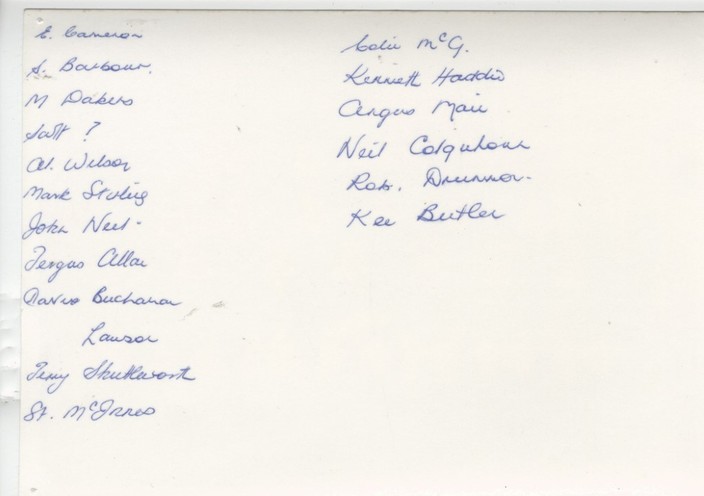 E. Cameron
A. Barbour.
M Dakers
?
Al. Wilson
Mark Stirling
John Neil-
Fergus Allan
David Buchanan
Lawson
Terry Shuttleworth
St. McInnes
Colin McG.
Kenneth Haddio
Angus Mair
Neil Colquhoun
Rob. Drummor-
Ken Butler